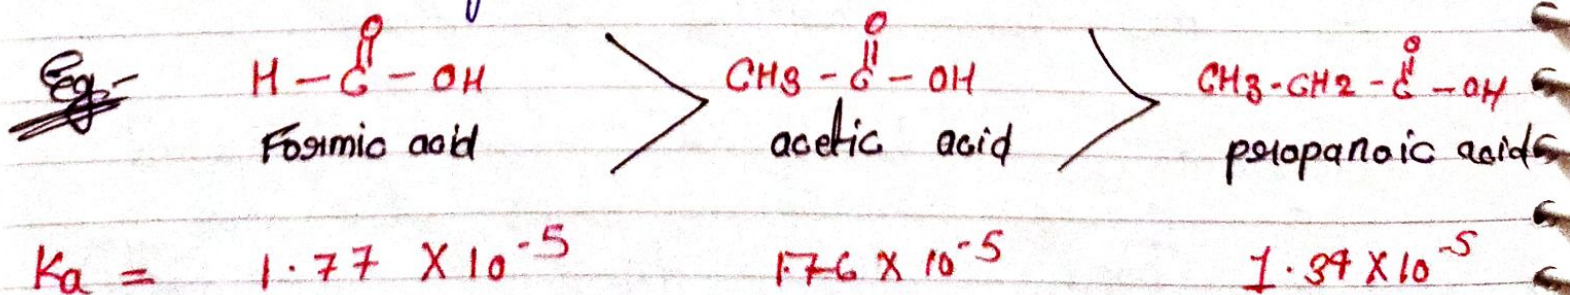 Eg:- H-C-OH > CH3-C-OH > CH3-CH2-C-OH
O O O
Formic acid acetic acid propanoic acid
Ka = 1.77 X 10-5 1.76 X 10-5 1.34 X 10-5